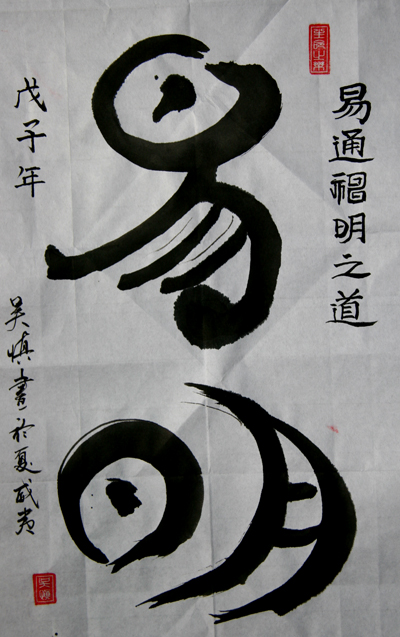 易通神明之道
易明
戊子年
吴慎書於夏威夷